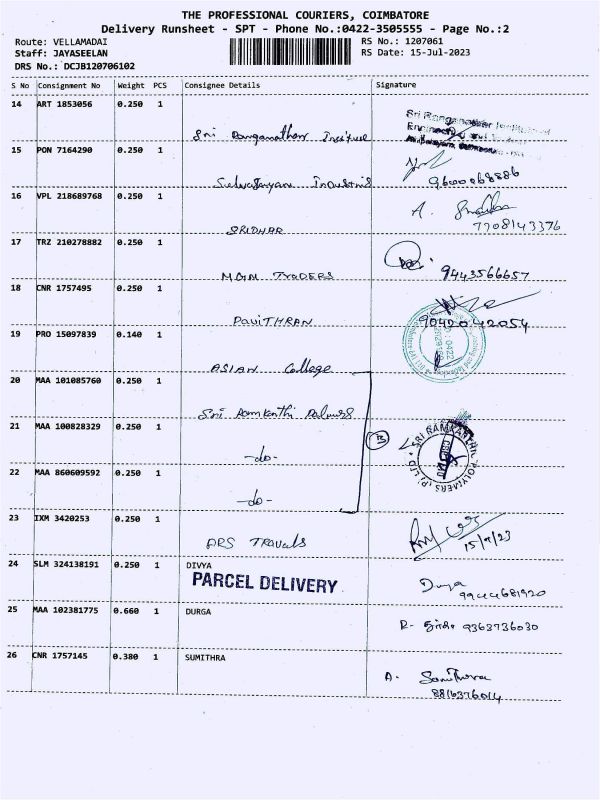 THE PROFESSIONAL COURIERS, COIMBATORE
Delivery Runsheet - SPT - Phone No.:0422-3505555 - Page No.:2
Route: VELLAMADAI
RS No.: 1207061
Staff: JAYASEELAN
RS Date: 15-Jul-2023
DRS No.: DCJB120706102
S No Consignment No Weight PCS Consignee Details Signature
14 ART 1853056 0.250 1
Sri Ranganathar Institue
15 PON 7164290 0.250 1
Industries
9600068886
16 VPL 218689768 0.250 1
A.
SRIDHAR
7708143376
17 TRZ 210278882 0.250 1
TRADERS
9443566657
18 CNR 1757495 0.250 1
PAVITHRAN
9042042054
19 PRO 15097839 0.140 1
ASIAN College
20 MAA 101085760 0.250 1
Sri Ramkanthi
21 MAA 100828329 0.250 1
-do-
SRI RAMKANTHI POLYMERS (P) LTD
22 MAA 860609592 0.250 1
-do-
23 IXM 3420253 0.250 1
ARS Travels
24 SLM 324138191 0.250 1 DIVYA
PARCEL DELIVERY
Divya
9944681920
25 MAA 102381775 0.660 1 DURGA
R- 9363736030
26 CNR 1757145 0.380 1 SUMITHRA
A.
8816376014